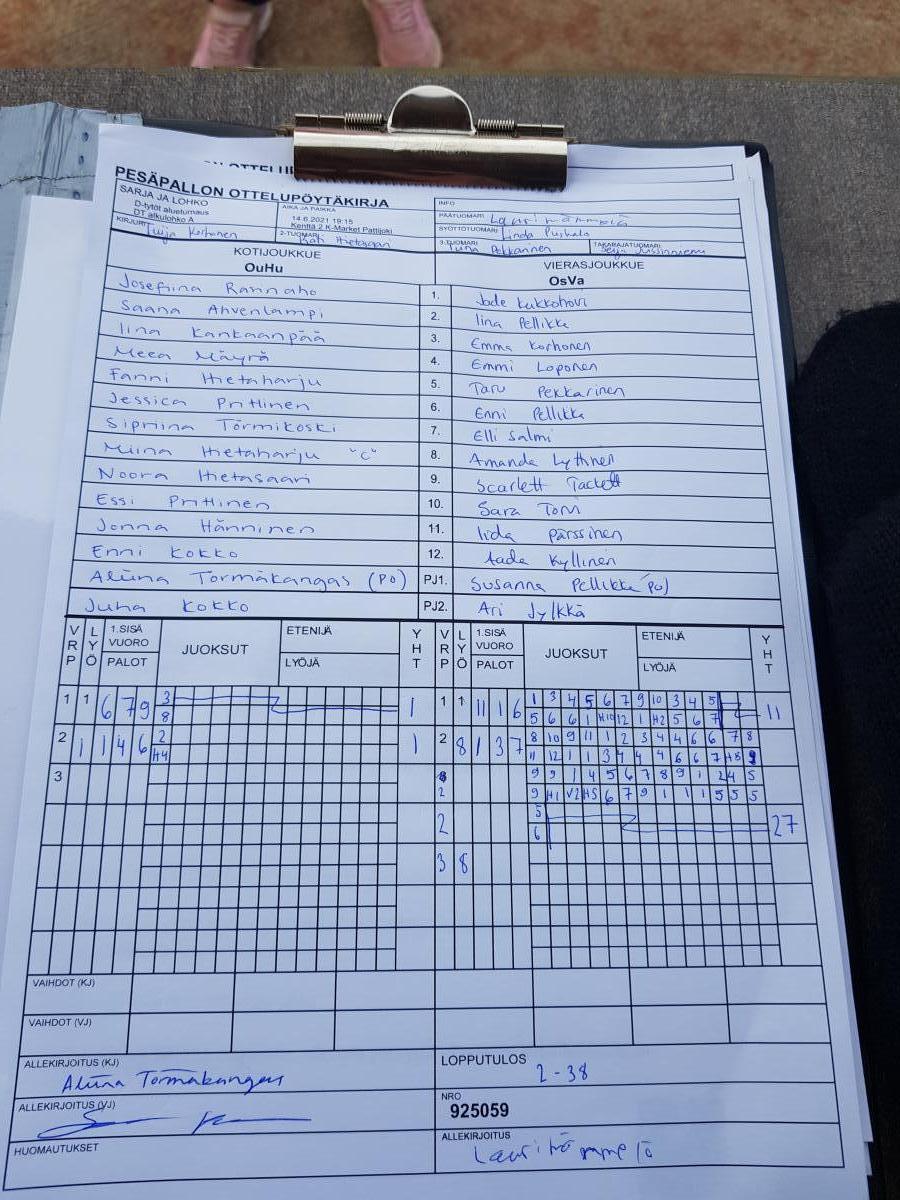 PESÄPALLON OTTELUPÖYTÄKIRJA
SARJA JA LOHKO
D-tytöt alueturnaus
DT alkulohko A
AIKA JA PAIKKA
14.6.2021 19:15
Kenttä 2 K-Market Pattijoki
INFO
PÄÄTUOMARI Lauri
SYÖTTÖTUOMARI Linda
KIRJURI Tuija Korhonen
2-TUOMARI Kati Hietasaari
3-TUOMARI Tuma Pekkarinen
TAKARAJATUOMARI
KOTIJOUKKUE VIERASJOUKKUE
OuHu OsVa
Josefiina Rannaho 1. Jade Kukkohovi
Saana Ahvenlampi 2. Iina Pellikka
Iina Kankaanpää 3. Emma Korhonen
Meea Mäyrä 4. Emmi Loponen
Fanni Hietaharju 5. Taru Pekkarinen
Jessica Prittinen 6. Enni Pellikka
Sipriina Törmikoski 7. Elli Salmi
Miina Hietaharju "C" 8. Amanda Lythinen
Noora Hietasaari 9. Scarlett Tackett
Essi Prittinen 10. Sara Torn
Jonna Hänninen 11. Iida Pärssinen
Enni Kokko 12. Aada Kyllinen
Aliina Tormäkangas (PO) PJ1. Susanna Pellikka PO)
Juha Kokko PJ2. Ari Jylkkä
VRP LYÖ 1.SISÄ VUORO PALOT JUOKSUT ETENIJÄ LYÖJÄ YHT VRP LYÖ 1.SISÄ VUORO PALOT JUOKSUT ETENIJÄ LYÖJÄ YHT
1 1 6 7 9 3 1 1 1 11 1 6 1 3 4 5 6 7 9 10 3 4 5 11
8 5 6 6 1 H10 12 1 H2 5 6 7
2 1 1 4 6 2 1 2 8 1 3 7 8 10 9 11 1 2 3 4 4 6 6 7 8
H4 11 12 1 1 3 4 4 4 6 6 7 H8 9
3 9 9 1 4 5 6 7 8 9 1 2 4 5
2 9 H1 V2 H5 6 7 9 1 1 1 5 5 5
2 5 27
6
3 8
VAIHDOT (KJ)
VAIHDOT (VJ)
ALLEKIRJOITUS (KJ) Aliina Tormäkangas
LOPPUTULOS 2-38
ALLEKIRJOITUS (VJ)
NRO
925059
HUOMAUTUKSET
ALLEKIRJOITUS Lauri